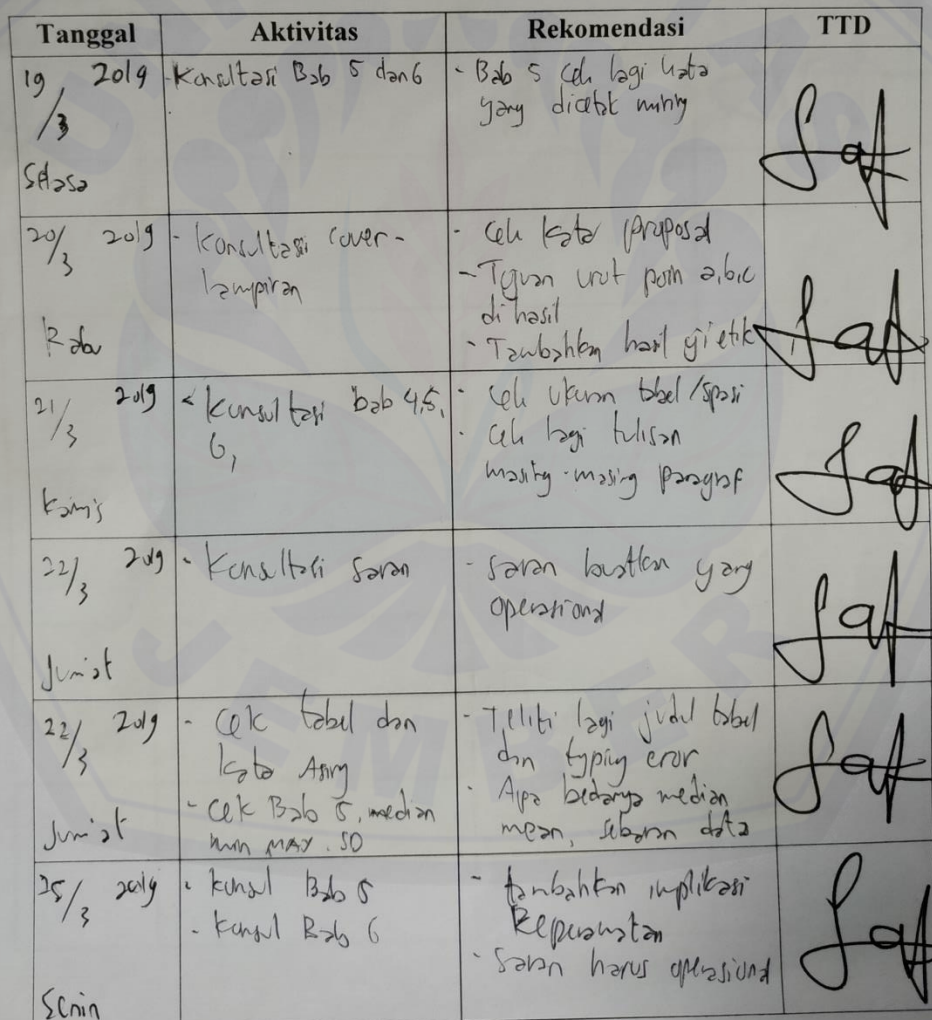 Tanggal Aktivitas Rekomendasi TTD
19/3 2019
Selasa
- Konsultasi Bab 5 dan 6
- Bab 5 cek lagi kata
yang dicetak miring
20/3 2019
Rabu
- Konsultasi cover -
lampiran
- Cek kata proposal
- Tujuan urut poin a,b,c
di hasil
- Tambahkan hasil uji etik
21/3 2019
Kamis
- Konsultasi bab 4,5,
6,
- Cek ukuran tabel / spasi
- Cek lagi tulisan
masing-masing paragraf
22/3 2019
Jum'at
- Konsultasi saran
- Saran buatkan yang
operasional
22/3 2019
Jum'at
- Cek tabel dan
kata Asing
- Cek Bab 5, median
min MAX. SD
- Teliti lagi judul tabel
dan typing eror
- Apa bedanya median
mean, sebaran data
25/3 2019
Senin
- Konsul Bab 5
- Konsul Bab 6
- tambahkan implikasi
Keperawatan
- Saran harus operasional
JEMBER